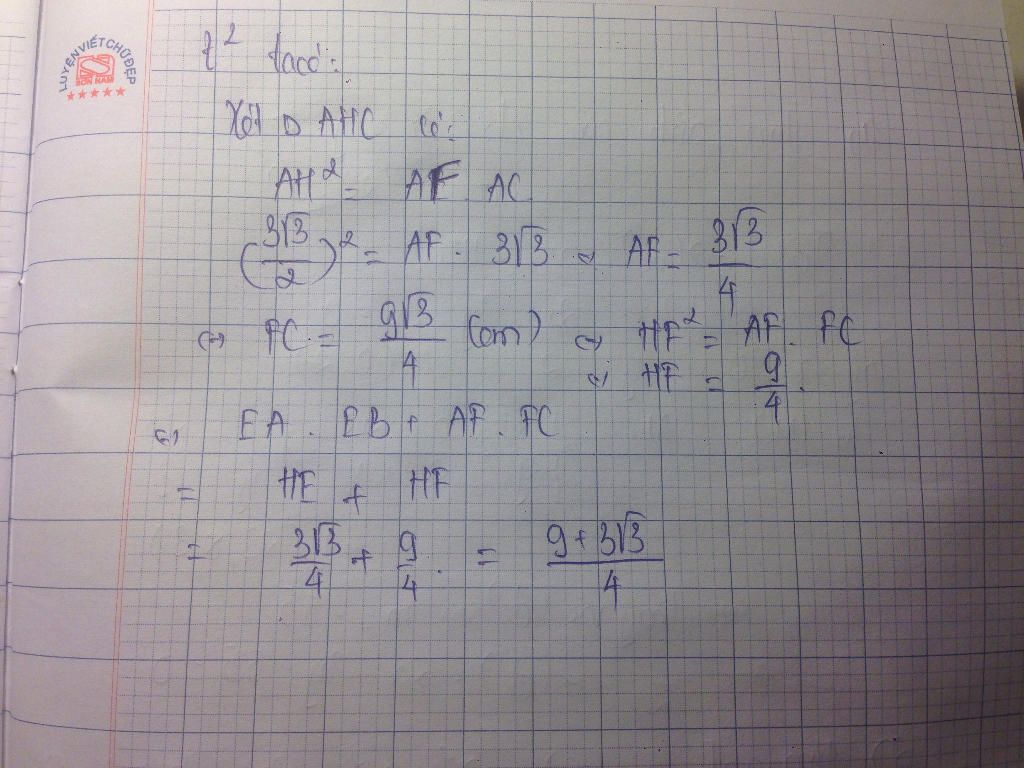 LUYỆN VIẾT CHỮ ĐẸP
2 tacó:
Xét Δ AHC có:
AH² = AF . AC
(3√3/2)² = AF . 3√3 ⇔ AF = 3√3/4
⇔ FC = 9√3/4 (cm) ⇔ HF² = AF . FC
⇔ HF = 9/4 .
⇔ EA . EB + AF . FC
= HE + HF
= 3√3/4 + 9/4 . = 9+3√3/4